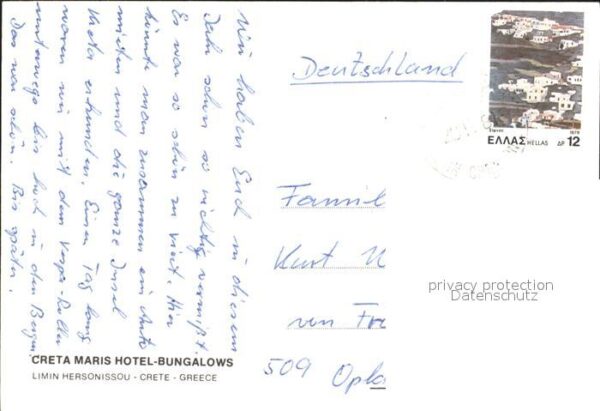 Wir haben Euch in diesem
Jahr schon so richtig vermißt.
Es war so schön zu viert. Hier
könnte man zusammen ein Auto
mieten und die ganze Insel
Kreta erkunden. Einen Tag lang
waren wir mit dem Vespa-Roller
unterwegs bis hoch in den Bergen.
Das war schön. Bis später.
CRETA MARIS HOTEL-BUNGALOWS
LIMIN HERSONISSOU - CRETE - GREECE
Deutschland
1979
ΕΛΛΑΣ HELLAS ΔΡ 12
Famil
Kurt
von Fre
509 Opla
privacy protection
Datenschutz